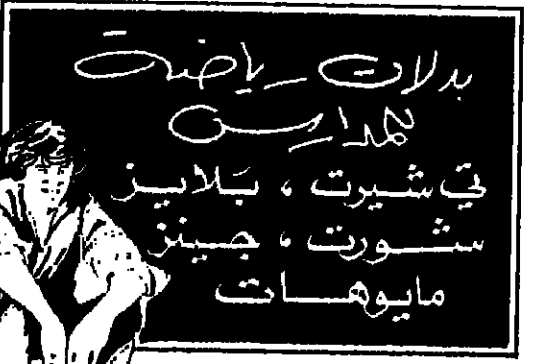 بدلات رياضة
للمدارس
تي شيرت ، بَلايز
شورت ، جينز
مايوهات